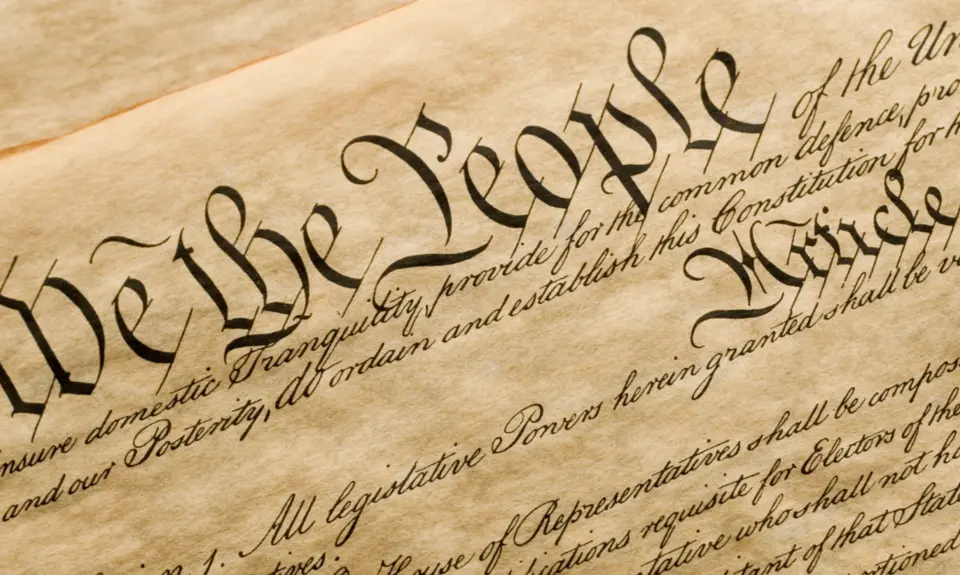 We the People of the Un
insure domestic Tranquility, provide for the common defence, pro
and our Posterity, do ordain and establish this Constitution for
Article
1. All legislative Powers herein granted shall be
House of Representatives shall be compos
requisite for Electors of the
who shall not ha
of that Stat